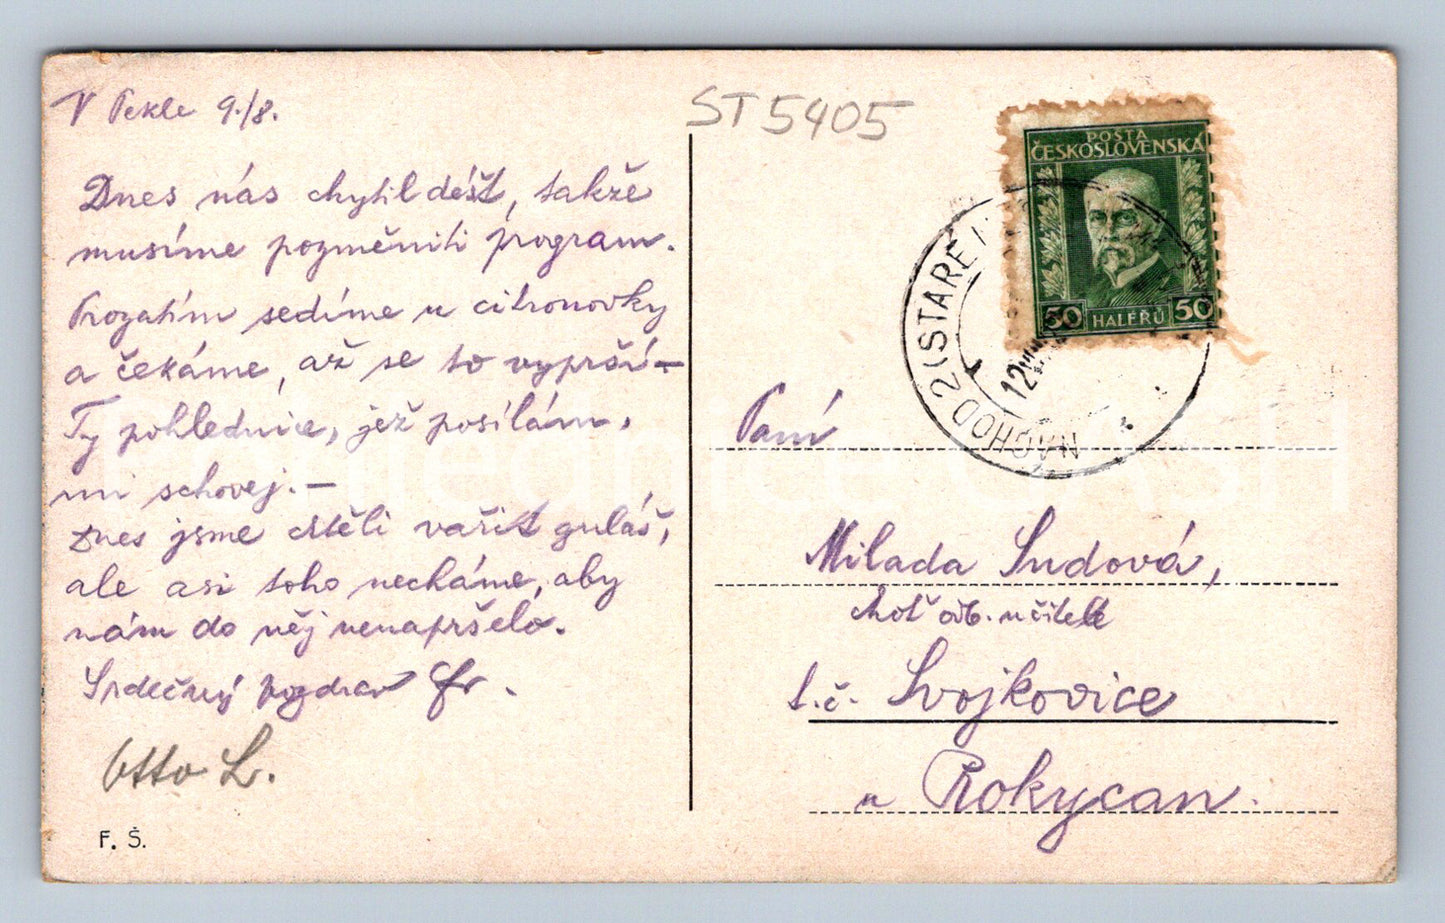 V Pekle 9./8.
Dnes nás chytil déšť, takže
musíme pozměniti program.
Prozatím sedíme u citronovky
a čekáme, až se to vyprší –
Ty pohlednice, jež posílám,
mi schovej. –
Dnes jsme chtěli vařit guláš,
ale asi toho necháme, aby
nám do něj nenapršelo.
Srdečný pozdrav Fr.
Otto L.
F. Š.
ST5405
POŠTA
ČESKOSLOVENSKÁ
50 HALÉŘŮ 50
NÁCHOD 2 (STARÉ
12
Paní
Milada Sudová,
choť odb. učitele
t. č. Svojkovice
u Rokycan.